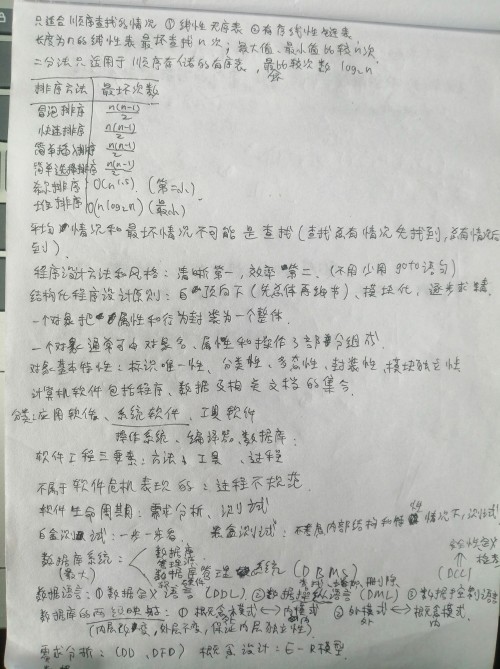 只适合顺序查找的情况 ①线性无序表 ②有序线性链表
长度为n的线性表最坏查找n次; 最大值、最小值比较n次
二分法只适用于顺序存储的有序表, 最坏比较次数 log₂n
排序方法 最坏次数
冒泡排序 n(n-1)/2
快速排序 n(n-1)/2
简单插入排序 n(n-1)/2
简单选择排序 n(n-1)/2
希尔排序 O(n^1.5). (第二小)
堆排序 O(nlog₂n) (最小)
平均情况和最坏情况不可能是查找(查找总有情况先找到,总有情况后
到).
程序设计方法和风格: 清晰第一, 效率第二. (不用少用goto语句)
结构化程序设计原则: 自顶向下(先总体再细节)、模块化, 逐步求精.
一个对象把属性和行为封装为一个整体.
一个对象通常可由对象名、属性和操作3部分组成.
对象基本特性: 标识唯一性、分类性、多态性、封装性、模块独立性
计算机软件包括程序、数据及相关文档的集合.
分类: 应用软件、系统软件、工具软件
操作系统、编译器、数据库.
软件工程三要素: 方法、工具、过程
不属于软件危机表现的: 过程不规范.
软件生命周期: 需求分析、测试
白盒测试: 一步一步看. 黑盒测试: 不考虑内部结构和特性情况下, 测试
数据库系统: 数据库
(最大) 管理员
数据库管理系统 (DBMS)
数据语言: ①数据定义语言 (DDL) ②数据操纵语言 (DML) ③数据控制语言 (DCL)
数据库的两级映射: ①概念模式⟷内模式 ②外模式⟷概念模式.
(内层改变, 外层不变, 保证内层独立性)
需求分析: (DD、DFD) 概念设计: E-R模型